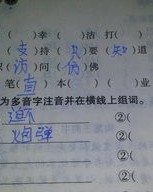 ( )幸( )洁 打( )
(支)持 (只)要 (知)道
识(访)问 (仿)佛
笔(直) 本( )( )业
为多音字注音并在横线上组词。
迫 ②(
炮弹 ②(
②(